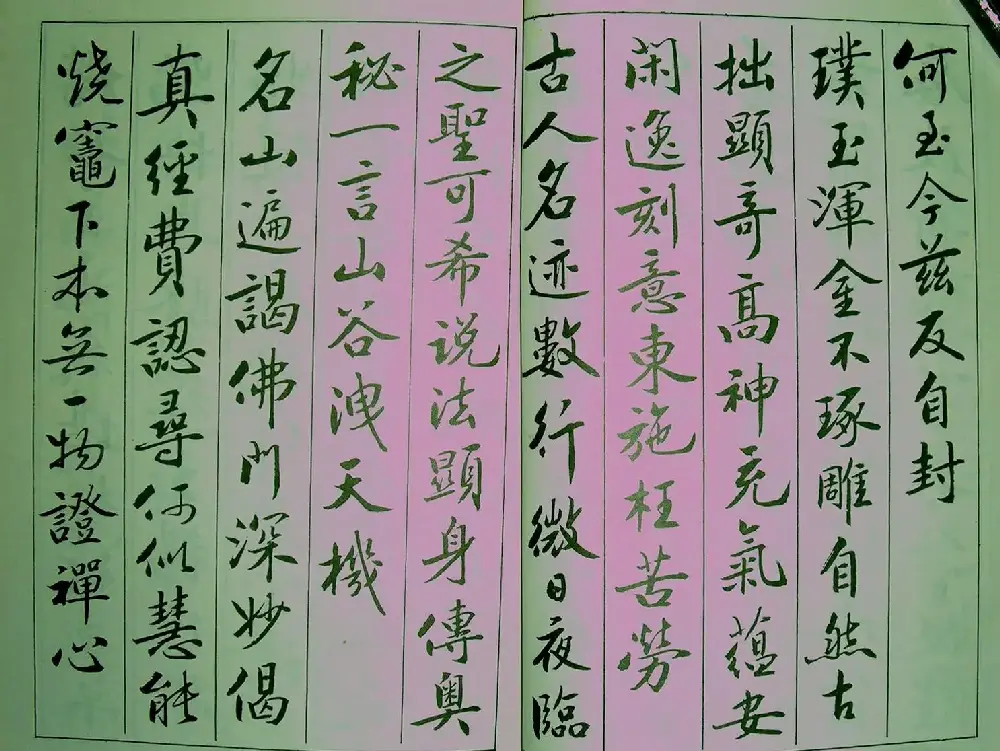 何至今兹反自封
璞玉渾金不琢雕自然古
拙顯奇高神充氣蕴安
闲逸刻意東施枉苦勞
古人名迹數行微日夜臨
之聖可希说法顯身傳奥
秘一言山谷洩天機
名山遍謁佛門深妙偈
真經費認尋何似慧能
燒竈下本無一物證禪心